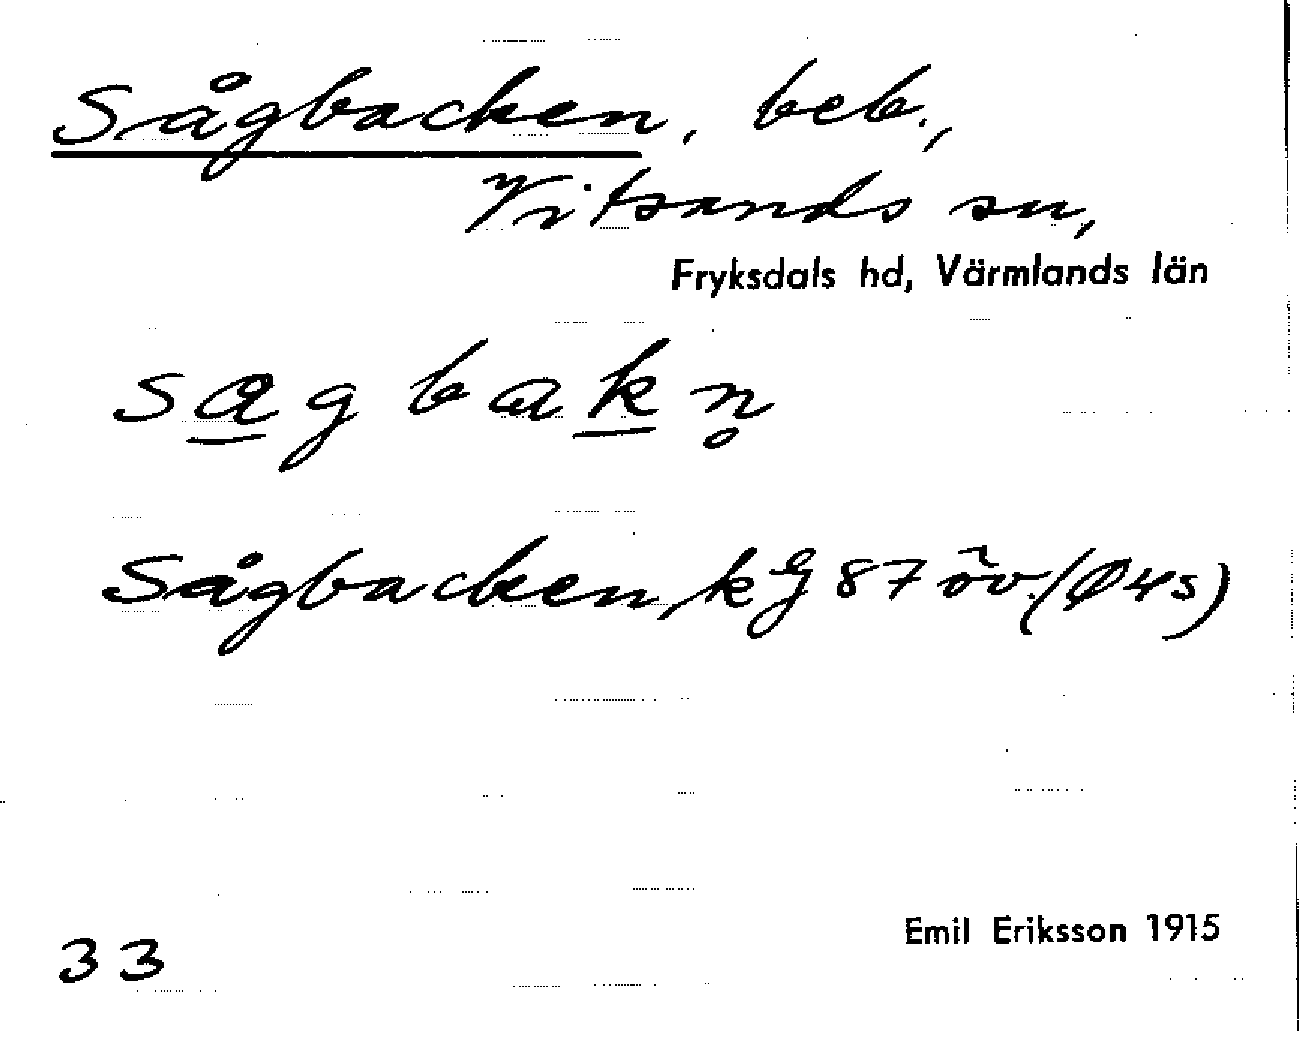 Sågbacken, beb.,
Vitsands sn,
Fryksdals hd, Värmlands län
sagbakn̥
Sågbacken, kG 87 öv. (Ø4s)
Emil Eriksson 1915
33